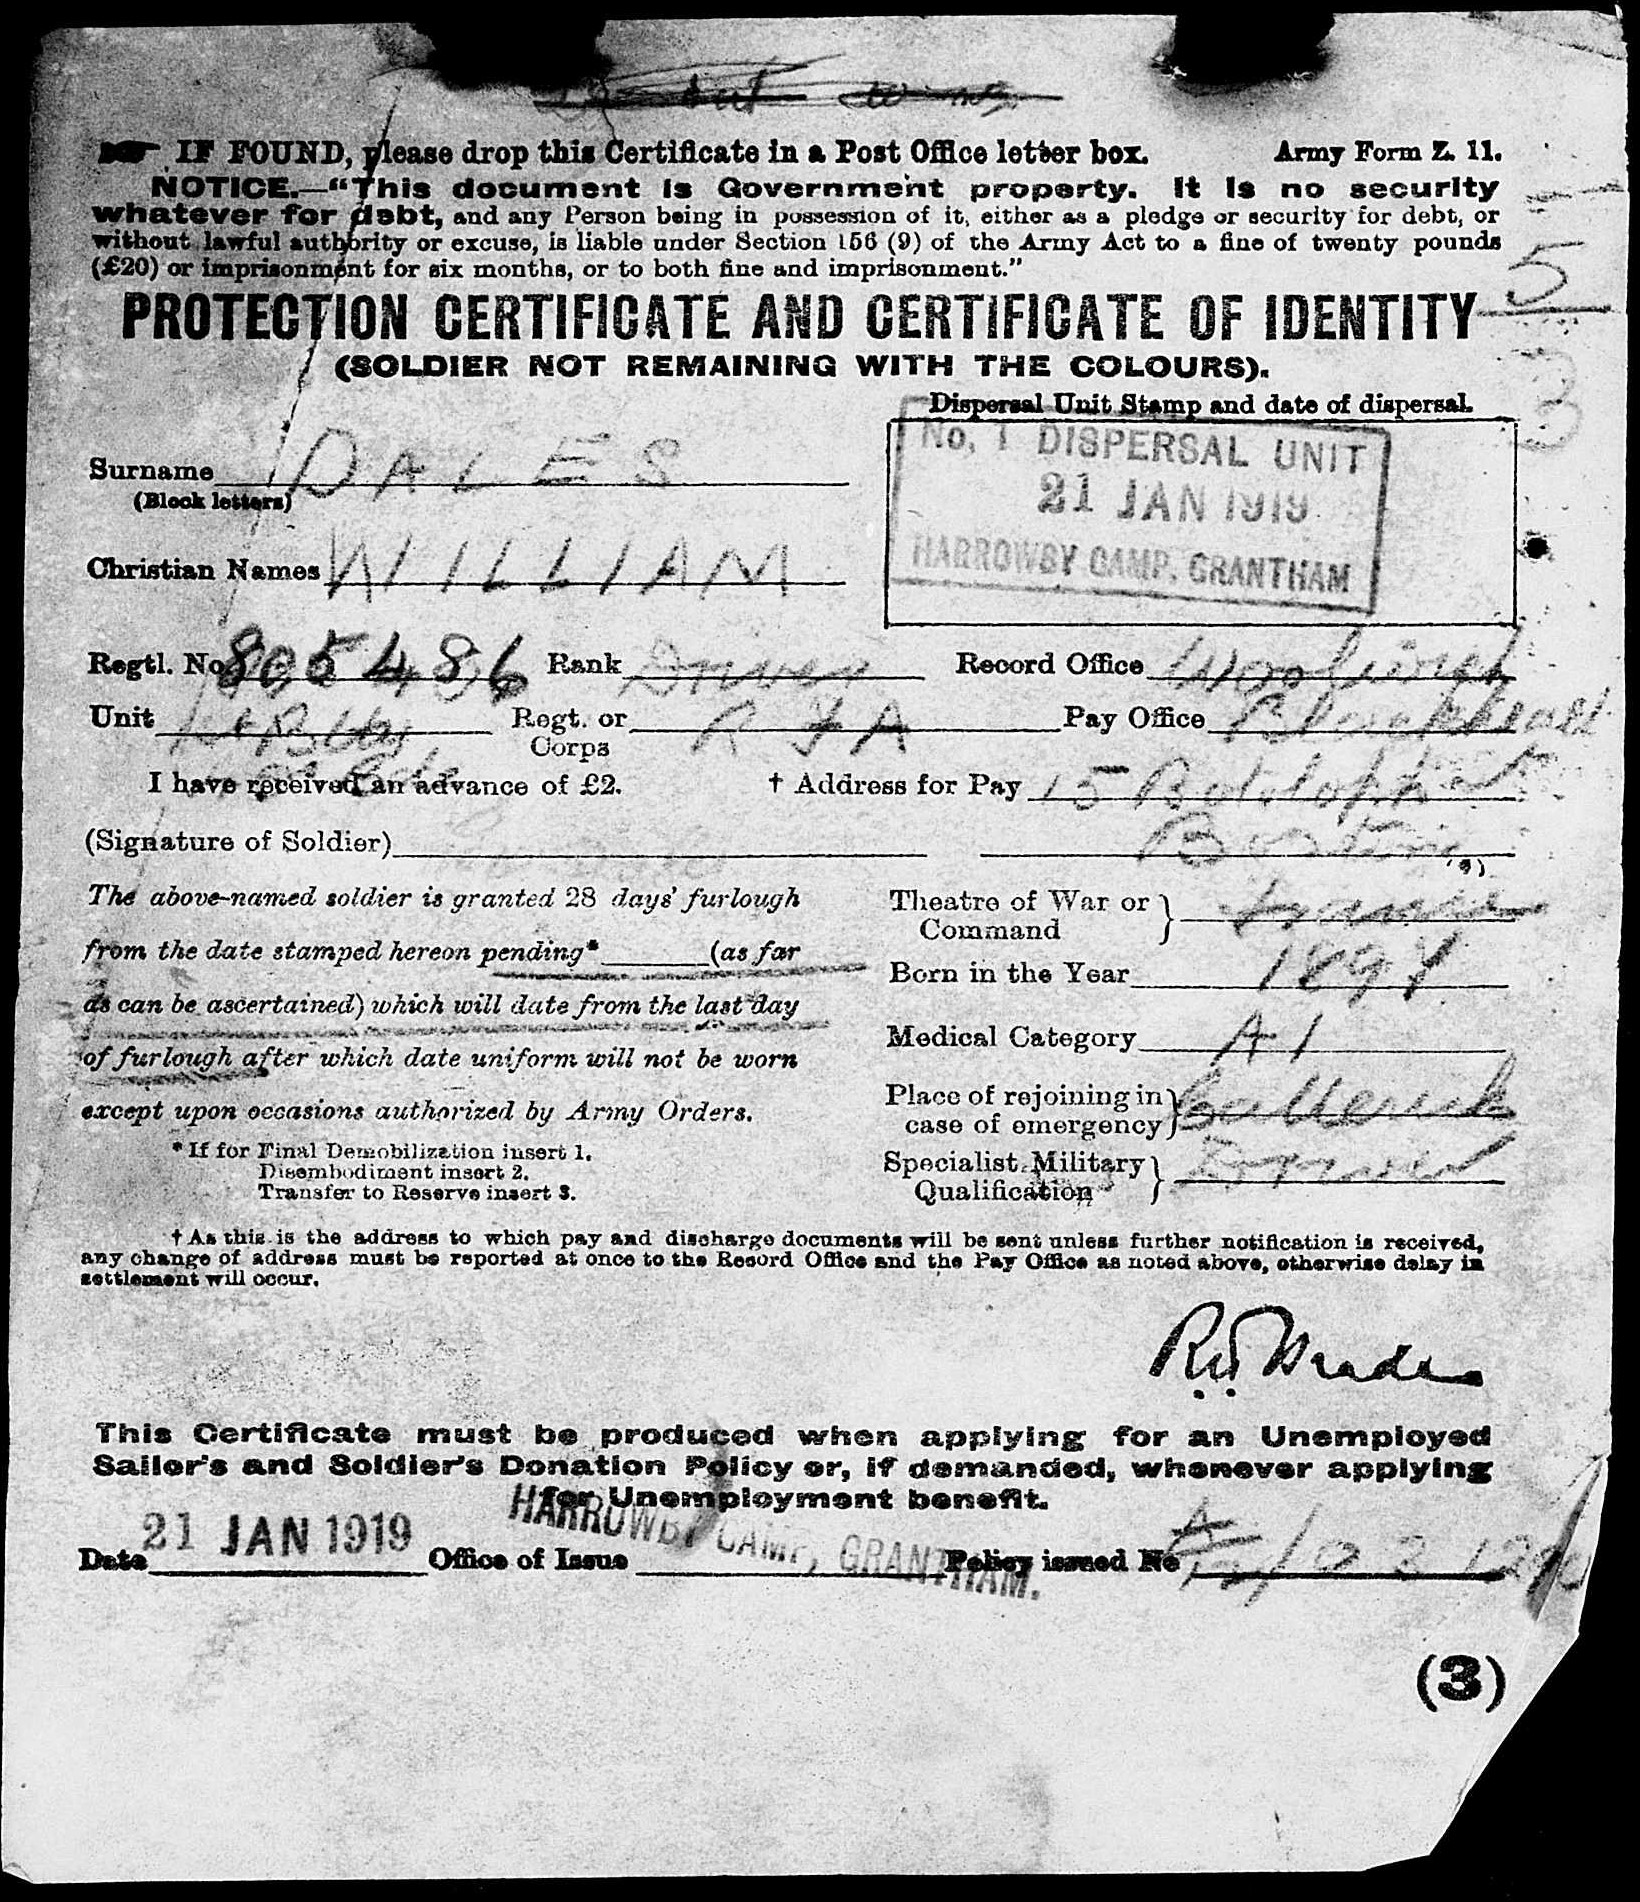 IF FOUND, please drop this Certificate in a Post Office letter box. Army Form Z. 11.
NOTICE.—"This document is Government property. It is no security
whatever for debt, and any Person being in possession of it, either as a pledge or security for debt, or
without lawful authority or excuse, is liable under Section 156 (9) of the Army Act to a fine of twenty pounds
(£20) or imprisonment for six months, or to both fine and imprisonment."
5
PROTECTION CERTIFICATE AND CERTIFICATE OF IDENTITY
(SOLDIER NOT REMAINING WITH THE COLOURS).
Dispersal Unit Stamp and date of dispersal.
No, 1 DISPERSAL UNIT
21 JAN 1919
HARROWBY CAMP, GRANTHAM
Surname DALES
(Block letters)
Christian Names WILLIAM
Regtl. No 805486 Rank Driver Record Office Woolwich
Unit Bty Regt. or RFA Pay Office Blackheath
Corps
I have received an advance of £2. † Address for Pay 15
(Signature of Soldier) Boston
The above-named soldier is granted 28 days' furlough
from the date stamped hereon pending* (as far
as can be ascertained) which will date from the last day
of furlough after which date uniform will not be worn
except upon occasions authorized by Army Orders.
*If for Final Demobilization insert 1.
Disembodiment insert 2.
Transfer to Reserve insert 3.
Theatre of War or France
Command
Born in the Year 1897
Medical Category A1
Place of rejoining in Catterick
case of emergency
Specialist Military Driver
Qualification
† As this is the address to which pay and discharge documents will be sent unless further notification is received,
any change of address must be reported at once to the Record Office and the Pay Office as noted above, otherwise delay in
settlement will occur.
This Certificate must be produced when applying for an Unemployed
Sailor's and Soldier's Donation Policy or, if demanded, whenever applying
for Unemployment benefit.
Date 21 JAN 1919 Office of Issue HARROWBY CAMP, GRANTHAM. Policy issued No
(3)